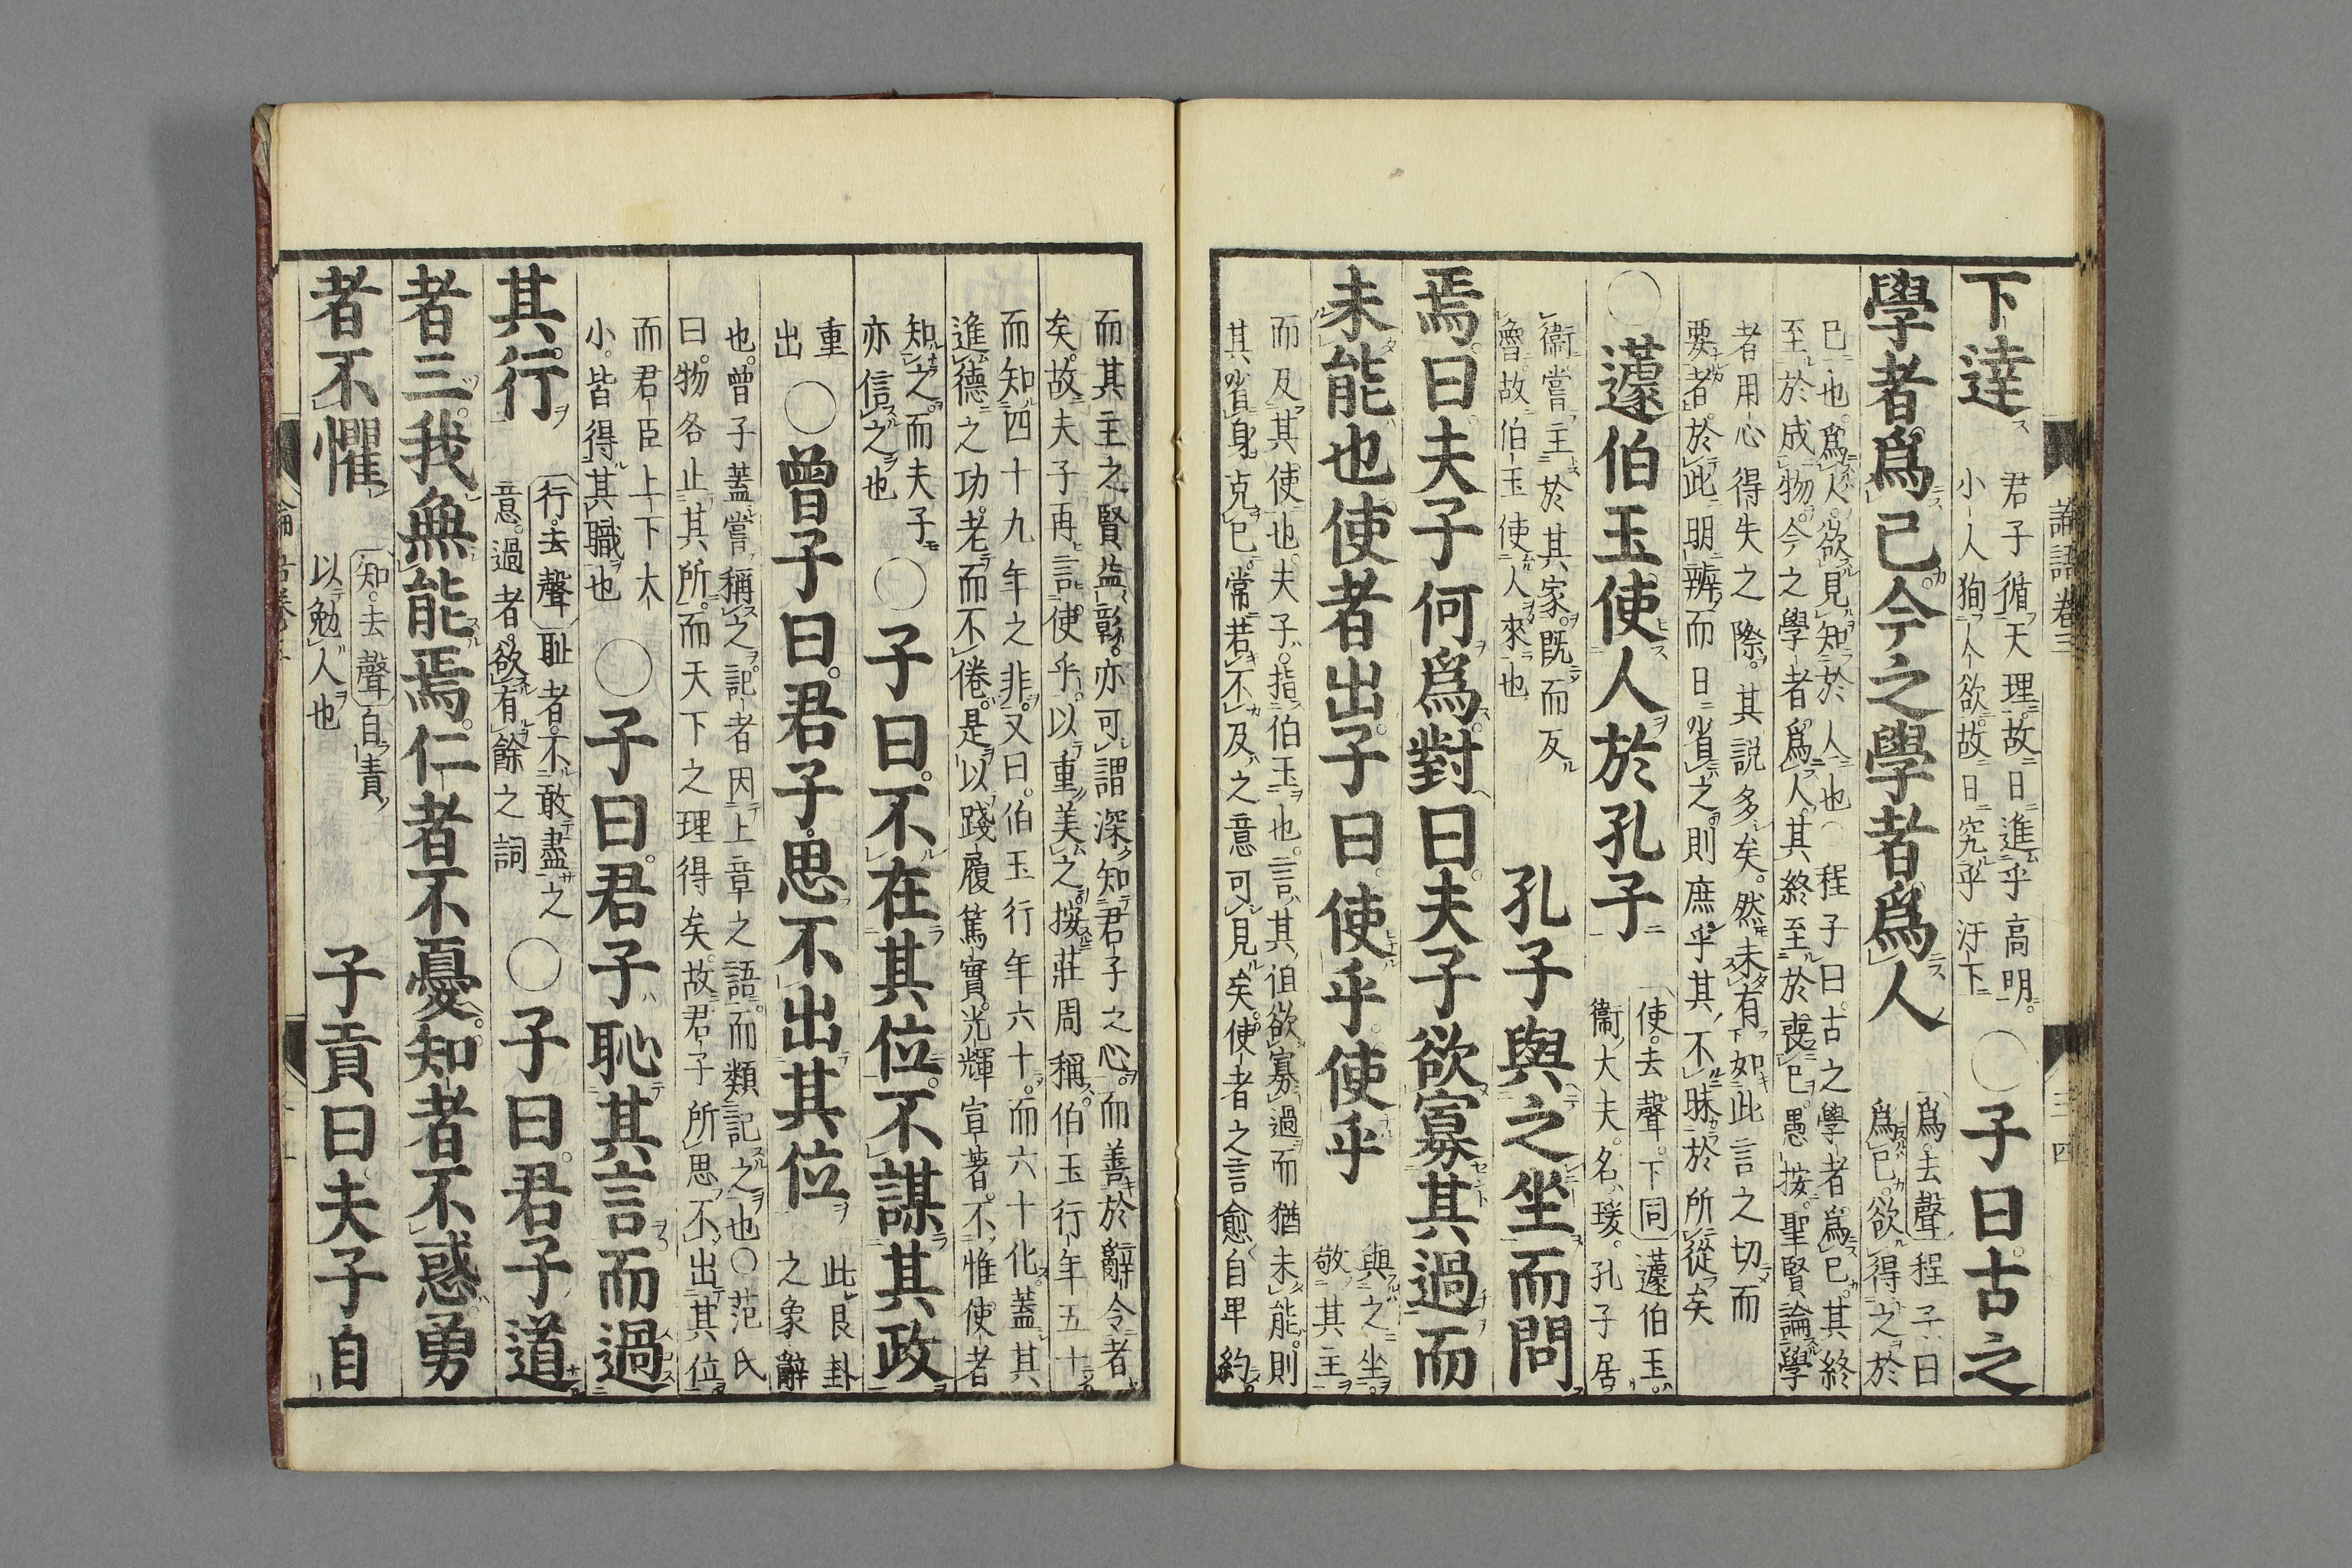 下達
君子循天理故日進乎高明
小人狥人欲故日究乎汙下
○子曰古之
學者爲己今之學者爲人
爲去聲程子曰
爲己欲得之於
己也爲人欲見知於人也○程子曰古之學者爲己其終
至於成物今之學者爲人其終至於喪己愚按聖賢論學
者用心得失之際其説多矣然未有如此言之切而
要者於此明辨而日省之則庶乎其不昧於所從矣
○蘧伯玉使人於孔子
使去聲下同蘧伯玉
衞大夫名瑗孔子居
衞嘗主於其家既而反
魯故伯玉使人來也
孔子與之坐而問
焉曰夫子何爲對曰夫子欲寡其過而
未能也使者出子曰使乎使乎
與之坐
敬其主
而及其使也夫子指伯玉也言其但欲寡過而猶未能則
其省身克己常若不及之意可見矣使者之言愈自卑約
論語卷三
三四
而其主之賢益彰亦可謂深知君子之心而善於辭令者
矣故夫子再言使乎以重美之按莊周稱伯玉行年五十
而知四十九年之非又曰伯玉行年六十而六十化蓋其
進德之功老而不倦是以踐履篤實光輝宣著不惟使者
知之而夫子
亦信之也
○子曰不在其位不謀其政
重
出
○曾子曰君子思不出其位
此艮卦
之象辭
也曾子蓋嘗稱之記者因上章之語而類記之也○范氏
曰物各止其所而天下之理得矣故君子所思不出其位
而君臣上下大
小皆得其職也
○子曰君子恥其言而過
其行
行去聲恥者不敢盡之
意過者欲有餘之詞
○子曰君子道
者三我無能焉仁者不憂知者不惑勇
者不懼
知去聲自責
以勉人也
子貢曰夫子自